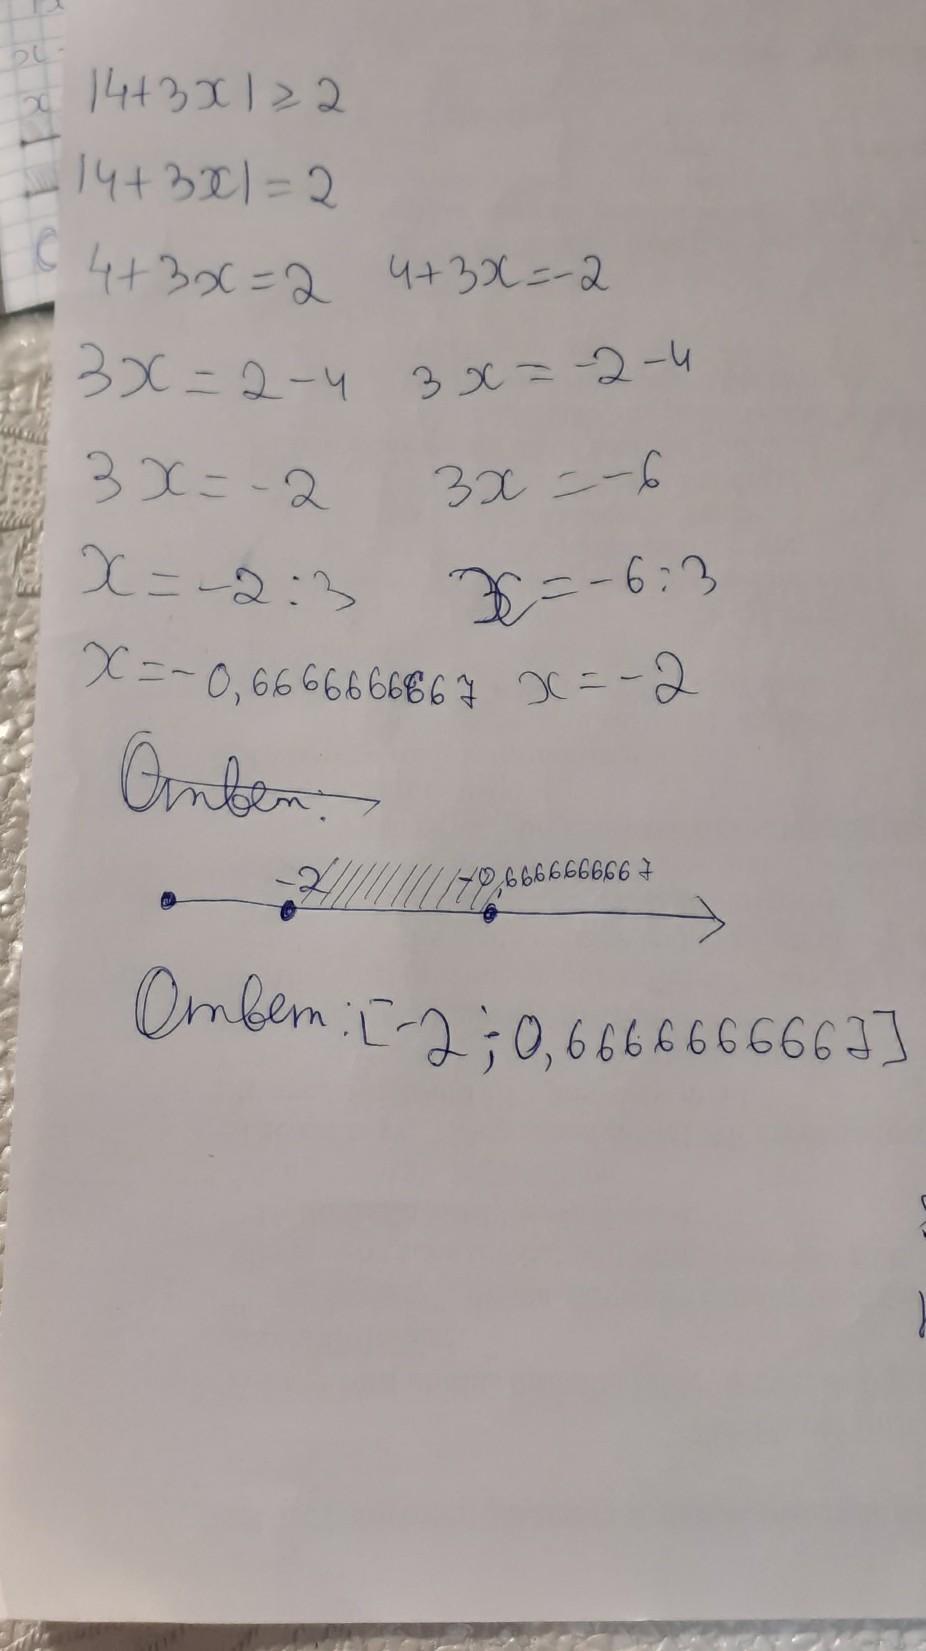 |4+3x| ≥ 2
|4+3x| = 2
4+3x=2 4+3x=-2
3x = 2-4 3x = -2-4
3x=-2 3x =-6
x=-2:3 x=-6:3
x=-0,6666666667 x=-2
Ответ:
-2 -0,6666666667
Ответ:[-2;0,6666666667]